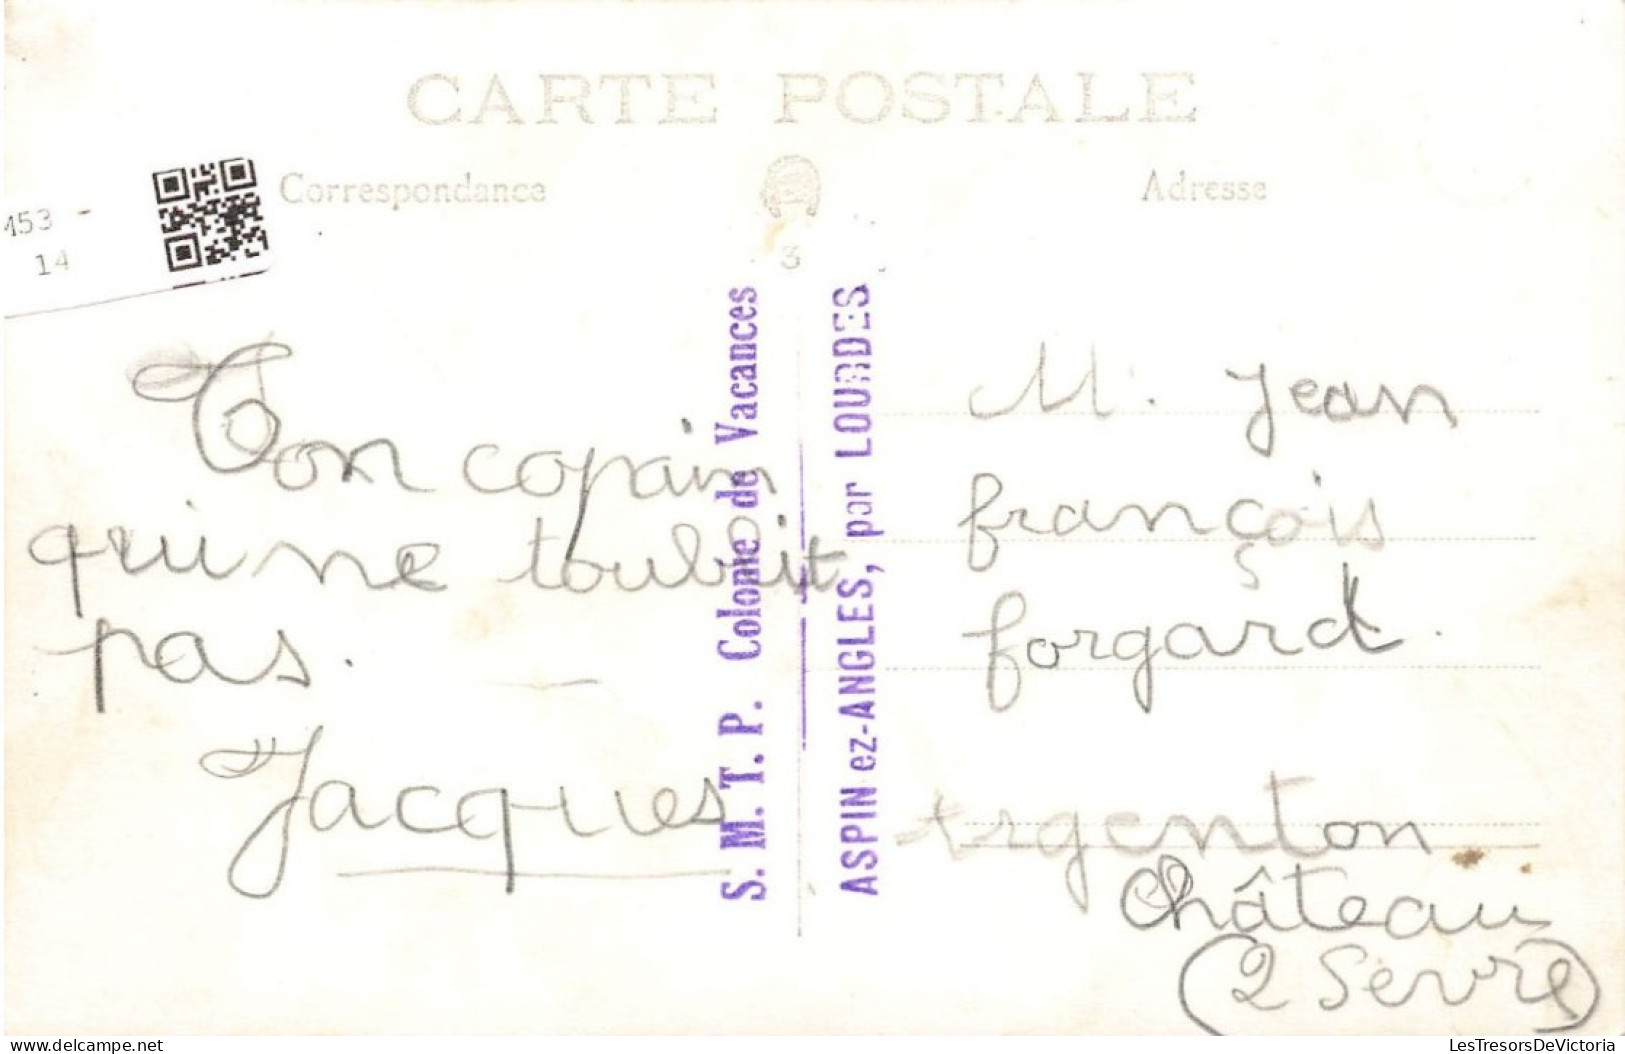 CARTE POSTALE
Correspondance
Adresse
153 -
14
3
Ton copain
qui ne toublit
pas.
Jacques
S. M. T. P. Colonie de Vacances
ASPIN-ez-ANGLES, par LOURDES
M. Jean
françois
forgard.
Argenton
Château
(2 Sevre)
delcampe.net
LesTresorsDeVictoria